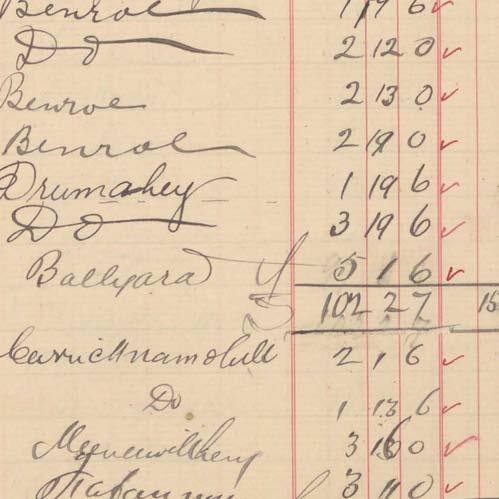 Benroe 1 19 6 ✓
Do 2 12 0 ✓
Benroe 2 13 0 ✓
Benroe 2 9 0 ✓
Drumahey 1 19 6 ✓
Do 3 19 6 ✓
Ballyara 5 1 6 ✓
102 2 7 15
2 1 6 ✓
Do 1 13 6 ✓
3 0 ✓
3 0 ✓